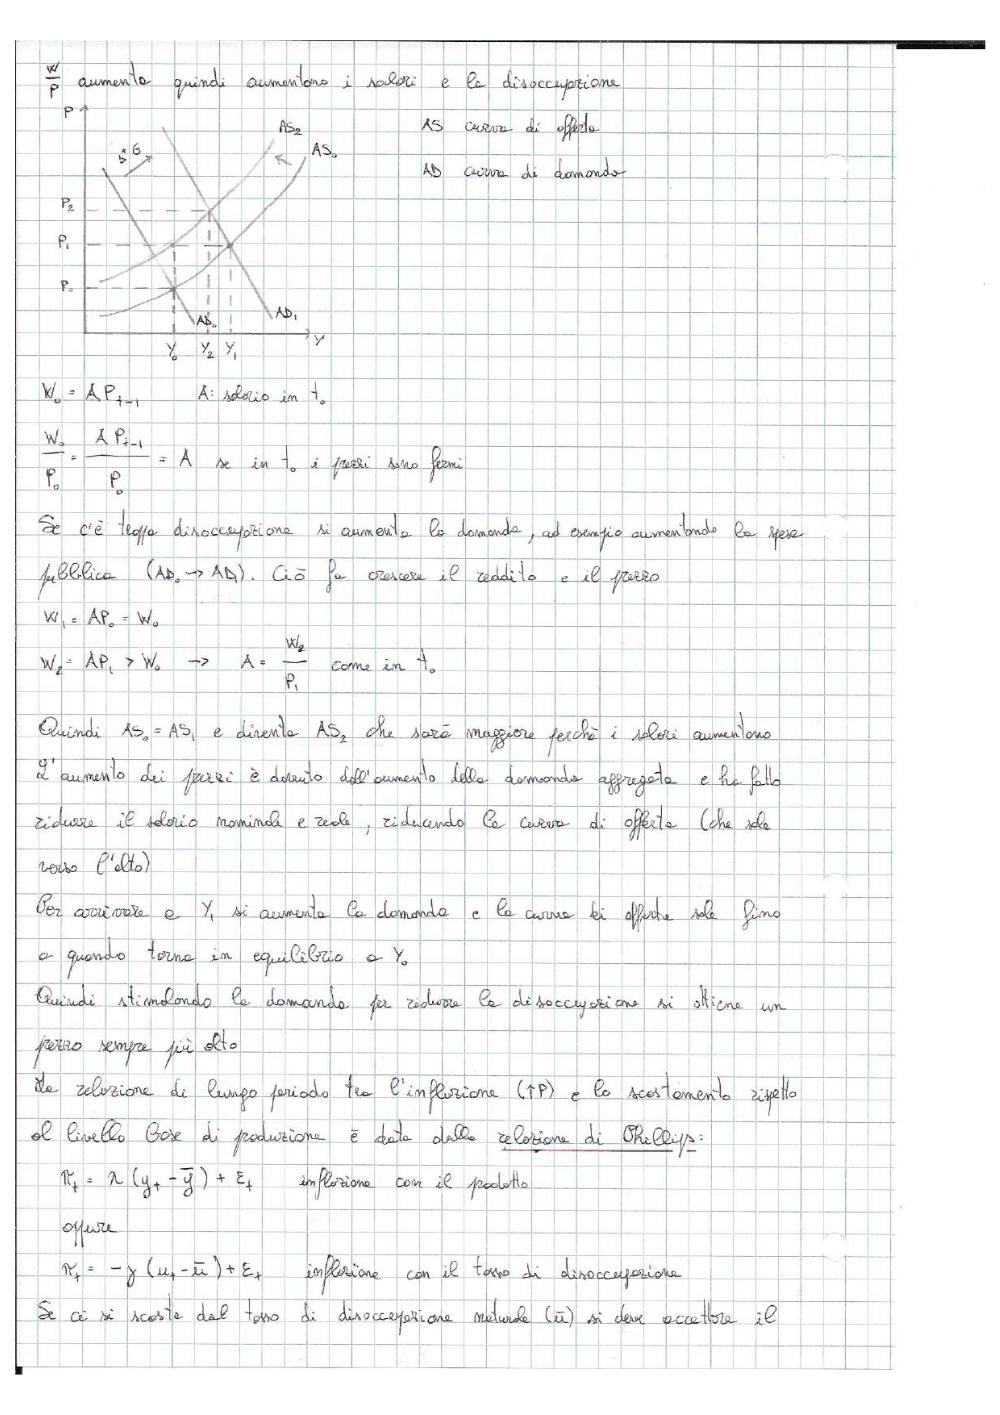 W/P aumenta quindi aumentano i salari e la disoccupazione
P
AS₂
AS curva di offerta
G
AS₀
AD curva di domanda
P₂
P₁
P₀
AD₀
AD₁
Y₀ Y₂ Y₁ Y
W₀ = A Pₜ₋₁ A: salario in t₀
W₀/P₀ = A Pₜ₋₁/P₀ = A se in t₀ i prezzi sono fermi
Se c'è troppa disoccupazione si aumenta la domanda, ad esempio aumentando la spesa
pubblica (AD₀ → AD₁). Ciò fa crescere il reddito e il prezzo
W₁ = AP₀ = W₀
W₂ = AP₁ > W₀ → A = W₂/P₁ come in t₀
Quindi AS₀ = AS₁ e diventa AS₂ che sarà maggiore perchè i salari aumentano
L'aumento dei prezzi è dovuto dall'aumento della domanda aggregata e ha fatto
ridurre il salario nominale e reale, riducendo la curva di offerta (che sale
verso l'alto)
Per arrivare a Y₁ si aumenta la domanda e la curva di offerta sale fino
a quando torna in equilibrio a Y₀
Quindi stimolando la domanda per ridurre la disoccupazione si ottiene un
prezzo sempre più alto
La relazione di lungo periodo tra l'inflazione (↑P) e lo scostamento rispetto
al livello base di produzione è data dalla relazione di Phillips:
πₜ = λ (yₜ - ȳ) + εₜ inflazione con il prodotto
oppure
πₜ = -γ (uₜ - ū) + εₜ inflazione con il tasso di disoccupazione
Se ci si scosta dal tasso di disoccupazione naturale (ū) si deve accettare il